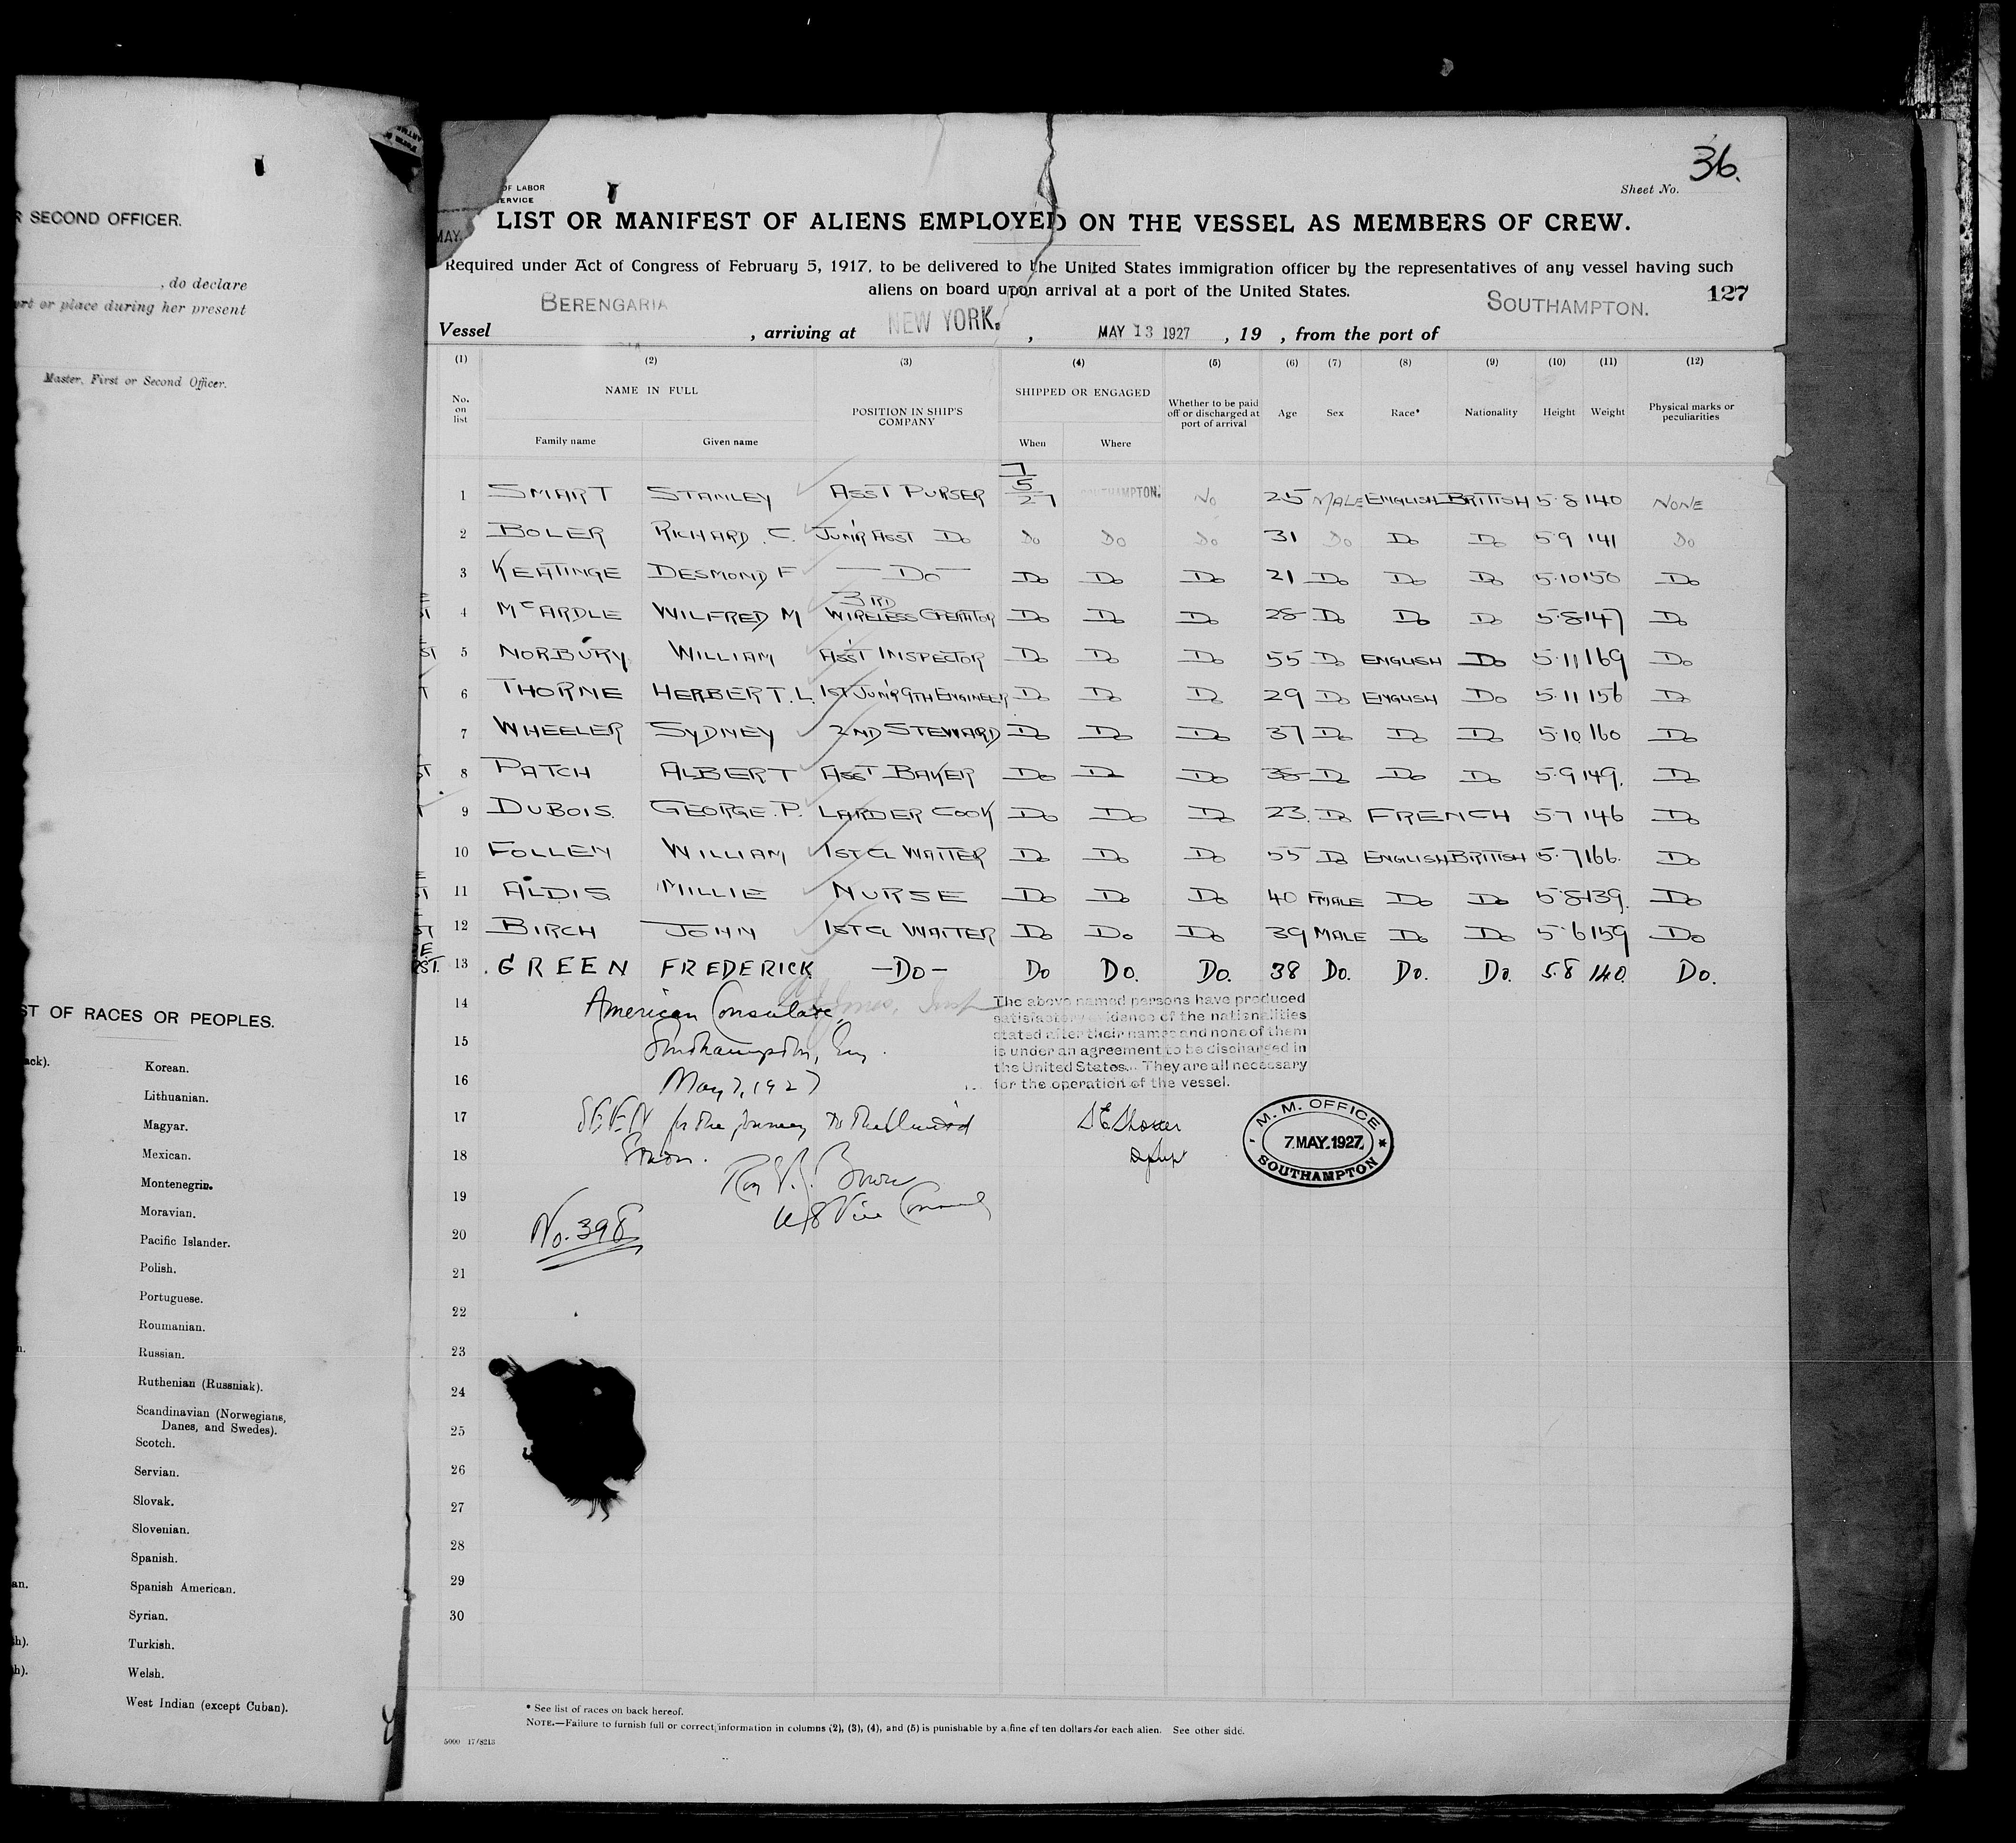 R SECOND OFFICER.
, do declare
ort or place during her present
Master, First or Second Officer.
ST OF RACES OR PEOPLES.
ack).
Korean.
Lithuanian.
Magyar.
Mexican.
Montenegrin.
Moravian.
Pacific Islander.
Polish.
Portuguese.
Roumanian.
n. Russian.
Ruthenian (Russniak).
Scandinavian (Norwegians,
Danes, and Swedes).
Scotch.
Servian.
Slovak.
Slovenian.
Spanish.
an. Spanish American.
Syrian.
h). Turkish.
h). Welsh.
West Indian (except Cuban).
36.
Sheet No.
OF LABOR
ERVICE
MAY.
LIST OR MANIFEST OF ALIENS EMPLOYED ON THE VESSEL AS MEMBERS OF CREW.
Required under Act of Congress of February 5, 1917, to be delivered to the United States immigration officer by the representatives of any vessel having such
aliens on board upon arrival at a port of the United States.
127
Vessel BERENGARIA , arriving at NEW YORK. , MAY 13 1927 , 19 , from the port of SOUTHAMPTON.
(1) (2) (3) (4) (5) (6) (7) (8) (9) (10) (11) (12)
No. on list NAME IN FULL POSITION IN SHIP'S COMPANY SHIPPED OR ENGAGED Whether to be paid off or discharged at port of arrival Age Sex Race* Nationality Height Weight Physical marks or peculiarities
Family name Given name When Where
1 SMART STANLEY ASST PURSER 7/5/27 SOUTHAMPTON. NO 25 MALE ENGLISH BRITISH 5·8 140 NONE
2 BOLER RICHARD. C. JUNR ASST DO DO DO DO 31 DO DO DO 5·9 141 DO
3 KEATINGE DESMOND F —DO— DO DO DO 21 DO DO DO 5·10 150 DO
4 MCARDLE WILFRED M 3RD WIRELESS OPERATOR DO DO DO 28 DO DO DO 5·8 147 DO
5 NORBURY WILLIAM ASST INSPECTOR DO DO DO 55 DO ENGLISH DO 5·11 169 DO
6 THORNE HERBERT. L. 1ST JUNR 9TH ENGINEER DO DO DO 29 DO ENGLISH DO 5·11 156 DO
7 WHEELER SYDNEY 2ND STEWARD DO DO DO 37 DO DO DO 5·10 160 DO
8 PATCH ALBERT ASST BAKER DO DO DO 38 DO DO DO 5·9 149. DO
9 DUBOIS. GEORGE. P. LARDER COOK DO DO DO 23. DO FRENCH 5·7 146 DO
10 FOLLEN WILLIAM 1ST CL WAITER DO DO DO 55 DO ENGLISH BRITISH 5·7 166. DO
11 ALDIS MILLIE NURSE DO DO DO 40 FMALE DO DO 5·8 139. DO
12 BIRCH JOHN 1ST CL WAITER DO DO DO 39 MALE DO DO 5·6 159 DO
13 GREEN FREDERICK —DO— DO DO. DO. 38 DO. DO. DO. 5·8 140. DO.
14 American Consulate,
15 Southampton, Eng.
16 May 7, 1927
17 SEEN for the journey to the United
18 States.
19 U S Vice Consul
20 No. 398
The above named persons have produced
satisfactory evidence of the nationalities
stated after their names and none of them
is under an agreement to be discharged in
the United States. They are all necessary
for the operation of the vessel.
M. M. OFFICE
7 MAY. 1927
SOUTHAMPTON
21
22
23
24
25
26
27
28
29
30
* See list of races on back hereof.
NOTE.—Failure to furnish full or correct information in columns (2), (3), (4), and (5) is punishable by a fine of ten dollars for each alien. See other side.
5000 17/8213